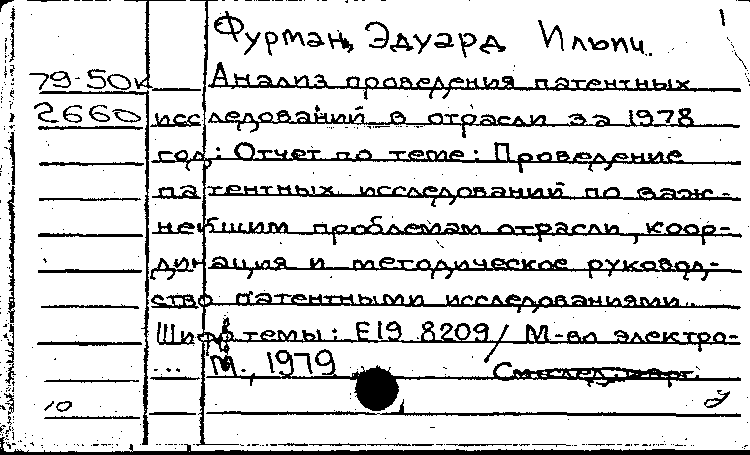 Фурман, Эдуард Ильич.
79-50к Анализ проведения патентных
2660 исследований в отрасли за 1978
год,: Отчет по теме: Проведение
патентных исследований по важ-
нейшим проблемам отрасли, коор-
динация и методическое руковод-
ство патентными исследованиями..
Шифр темы: Е19 8209/ М-во электро-
... М., 1979
10